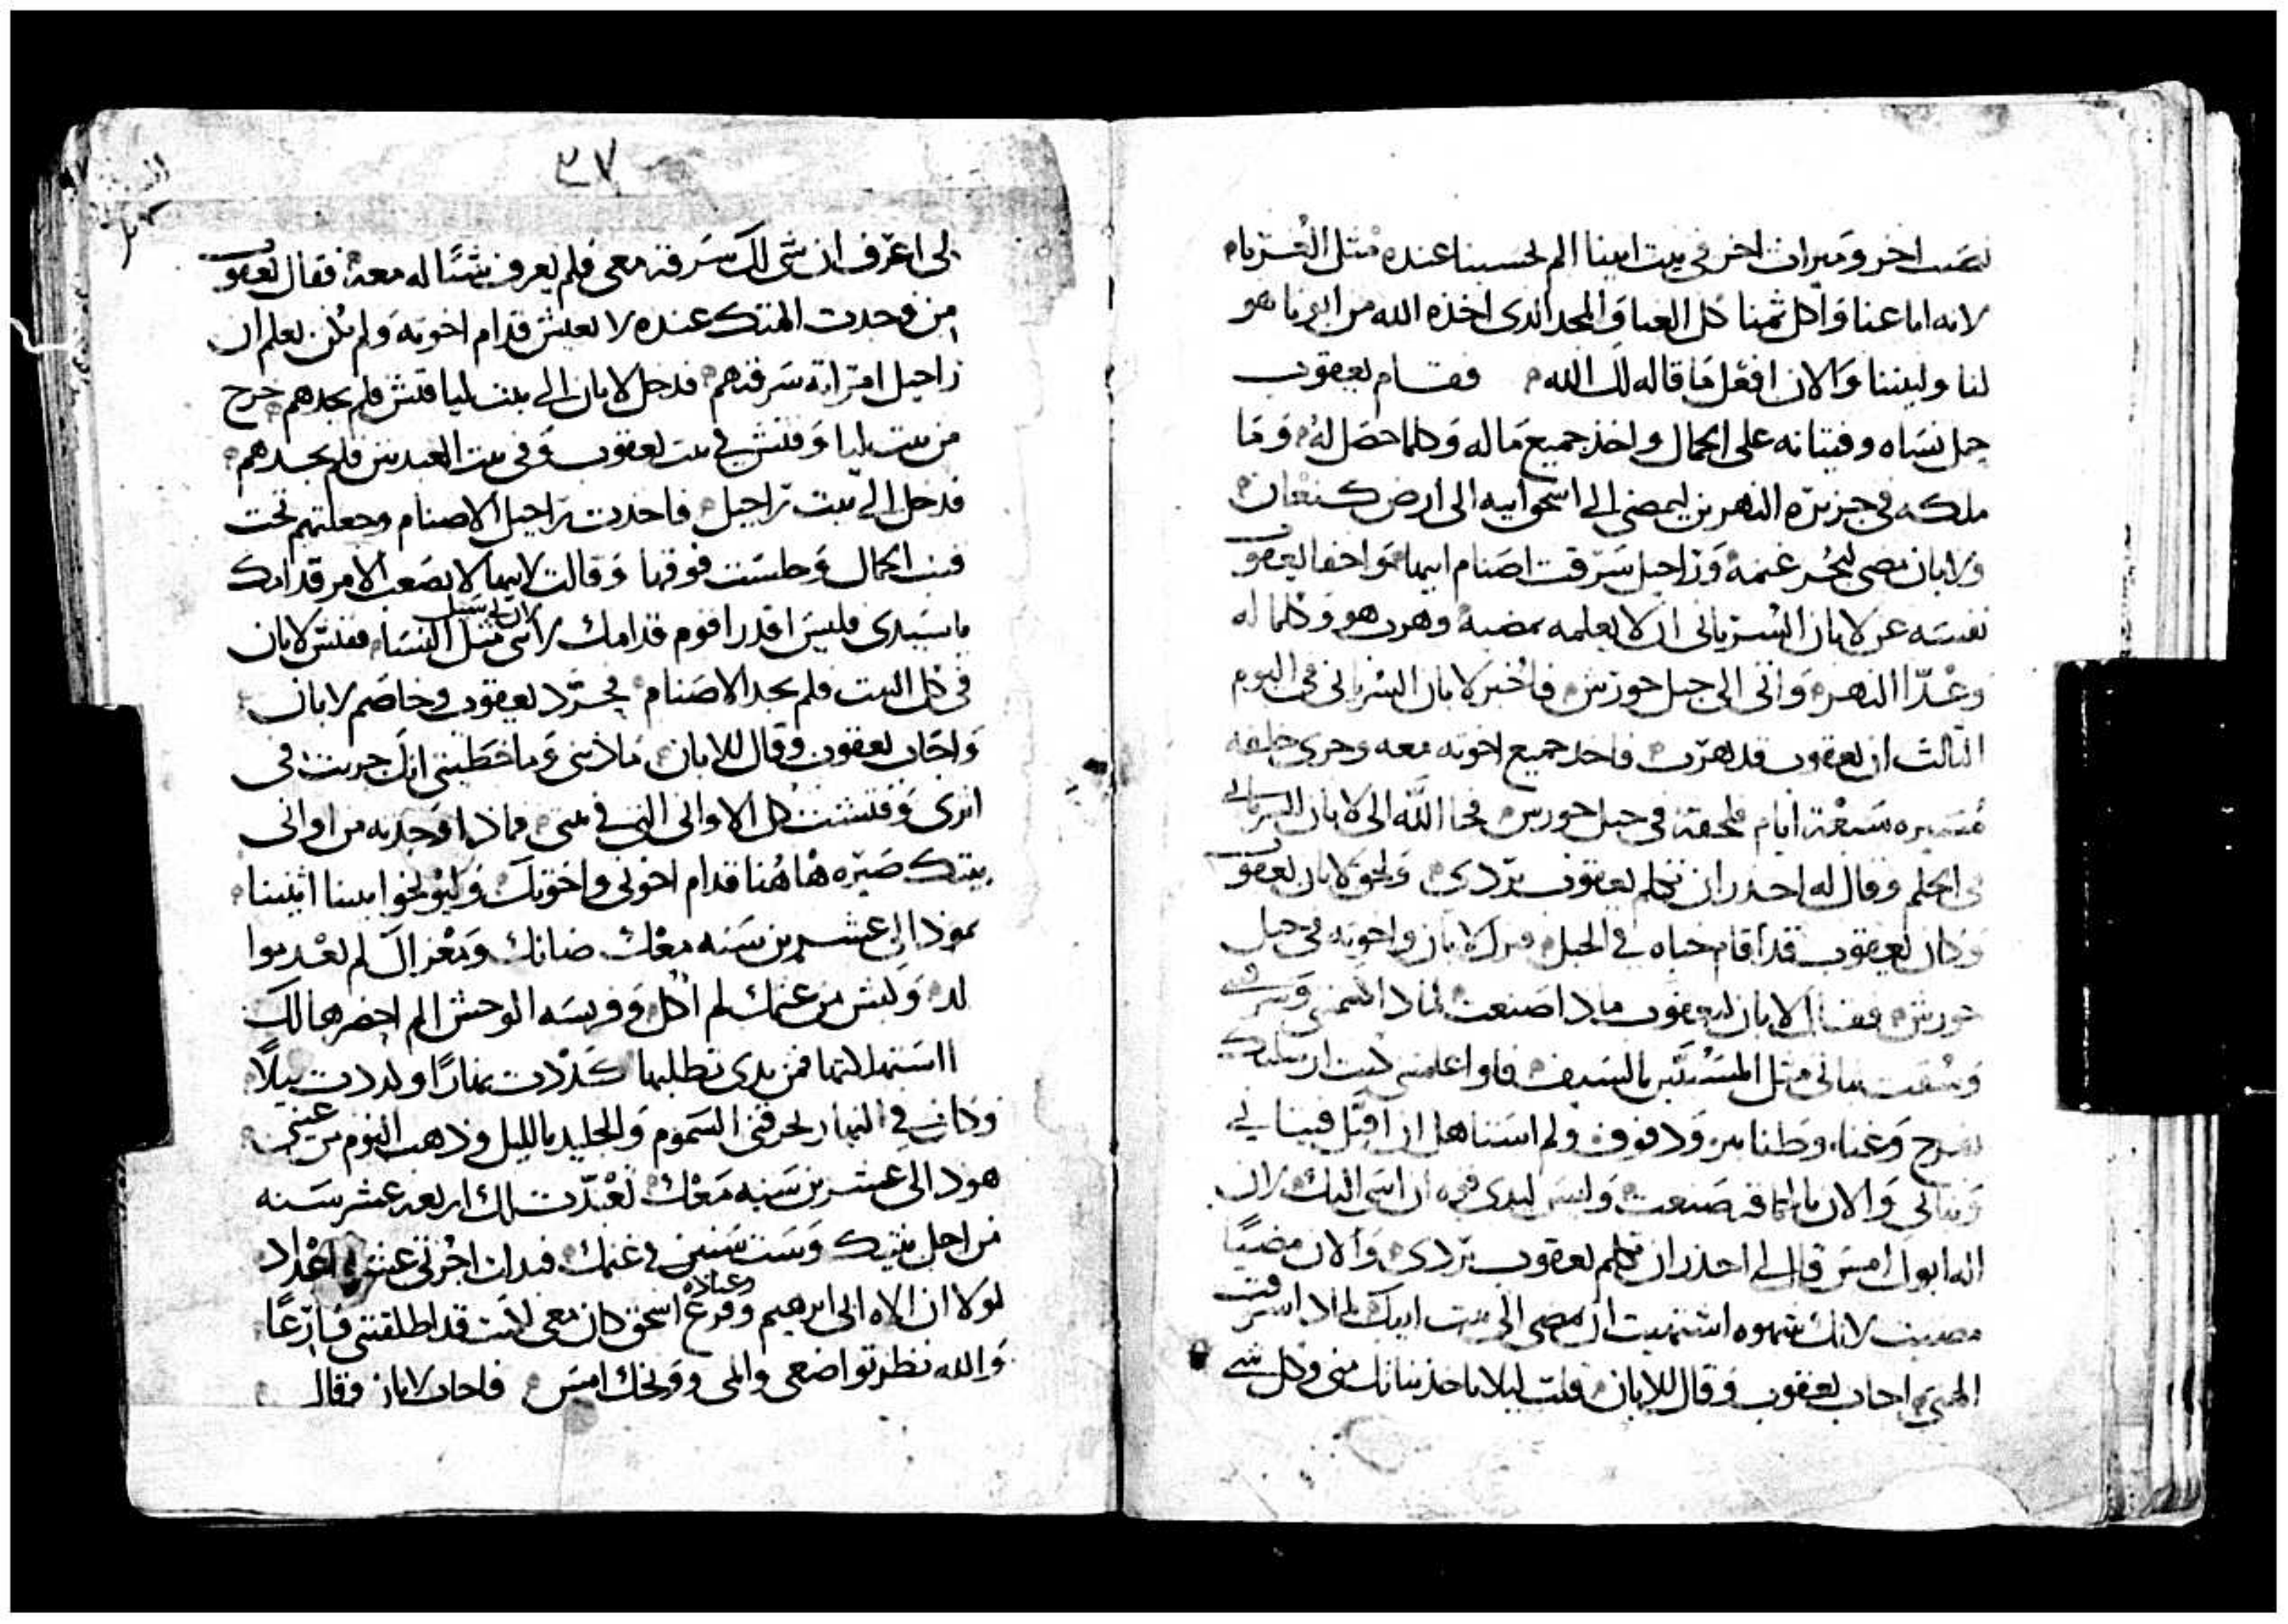 نصيب اخر وميراث اخر في بيت ابينا الم تحسبنا عنده مثل الغرباء
لانه اباعنا واكل ثمننا كل الغنا والمجد الذي اخذه الله من ابونا هو
لنا ولبنينا والان افعل ما قاله لك الله فقام يعقوب
حمل نساه وفتيانه على الجمال واخذ جميع ماله وكلما حصل له وما
ملكه في جزيرة النهرين ليمضي الى اسحق ابيه الى ارض كنعان
ولابان مضى ليجز غنمه وراحيل سرقت اصنام ابيها واخفا يعقوب
نفسه عن لابان السرياني ان لا يعلمه بمضيه وهرب هو وكلما له
وعدا النهر واتى الى جبل حورش فاخبر لابان السرياني في اليوم
الثالث ان يعقوب قد هرب فاخذ جميع اخوته معه وجرى خلفه
مسيره سبعة ايام فلحقه في جبل حورش فجا الله الى لابان السرياني
في الحلم وقال له احذر ان تكلم يعقوب بردي ولحق لابان يعقوب
وكان يعقوب قد اقام خباه في الجبل فنزل لابان واخوته في جبل
حورش فقال لابان ليعقوب ماذا صنعت لماذا اكتمتني وسرقتني
وسقت بناتي مثل المستبئين بالسيف فلو اعلمتني كنت ارسلتك
بفرح وغنا وطنابير ودفوف ولم استاهل ان اقبل فينابي
وبناتي والان بالحماقه صنعت وليس ليدي قوه ان اسي اليك لان
اله ابوك امس قال لي احذر ان تكلم يعقوب بردي والان مضيا
مضيت لانك شهوه اشتهيت ان تمضي الى بيت ابيك لماذا سرقت
الهتي اجاب يعقوب وقال للابان قلت ليلا تاخذ بناتك مني وكل شي
٣٧
لي اعرف ان شي لك سرقته معي فلم يعرف شئا له معه فقال يعقوب
من وجدت الهتك عنده لا يعيش قدام اخوته ولم يكن يعلم ان
راحيل امراته سرقتهم فدخل لابان الى بيت ليا فتش فلم يجدهم خرج
من بيت ليا وفتش في بيت يعقوب وفي بيت العبدتين فلم يجدهم
فدخل الى بيت راحيل فاخذت راحيل الاصنام وجعلتهم تحت
قتب الجمال وجلست فوقها وقالت لابيها لا يصعب الامر قدامك
ياسيدي فليس اقدر اقوم قدامك لان بي سبيل النسا ففتش لابان
في كل البيت فلم يجد الاصنام فحرد يعقوب وخاصم لابان
واجاب يعقوب وقال للابان ماذنبي وما خطيتي انك جريت في
اثري وفتشت كل الاواني التي في بيتي فماذا وجدته من اواني
بيتك صيره هاهنا قدام اخوتي واخوتك وليوبخوا بيننا اثنيننا
هوذا لي عشرين سنه معك ضانك ومعزاك لم تعدموا
لد وكبش من غنمك لم اكل وفريسه الوحش الم احضرها لك
استهلاكها فمن يدي تطلبها كددت نهارا وكددت ليلا
وكان في النهار يحرقني السموم والجليد بالليل وذهب النوم من عيني
هوذا لي عشرين سنه معك تعبدت لك اربعه عشر سنه
من اجل بنتيك وست سنين في غنمك فبدلت اجرتي عشرة اعداد
لولا ان الاه ابي ابرهيم وفزع اسحق كان معي لكنت قد اطلقتني فارغا
والله نظر تواضعي والمي ووبخك امس فاجاب لابان وقال